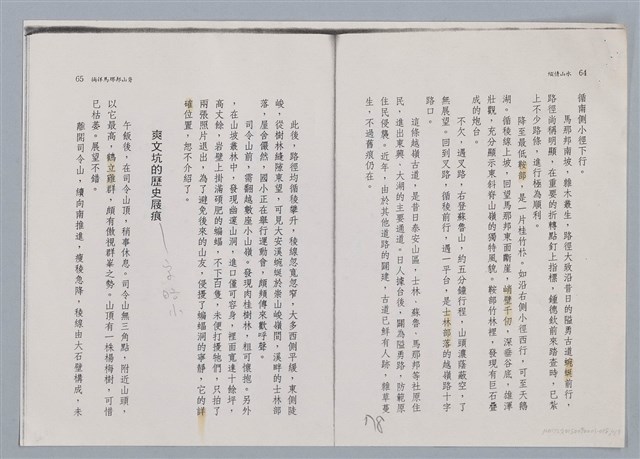 64 水山情悩
循南側小徑下行。
馬那邦南坡，雜木叢生，路徑大致沿昔日的隘勇古道蜿蜒前行，
路徑尚稱明顯，在重要的折轉點釘上指標，鍾德欽前來踏查時，已紮
上不少路條，進行極為順利。
降至最低鞍部，是一片桂竹林。如沿右側小徑西行，可至天鵝
湖。循稜線上坡，回望馬那邦東面斷崖，峭壁千仞，深壑谷底，雄渾
壯觀，充分顯示東斜脊山嶺的獨特風貌。鞍部竹林裡，發現有巨石疊
成的炮台。
不欠，遇叉路，右登蘇魯山，約五分鐘行程，山頭濃蔭蔽空，了
無展望。回到叉路，循稜前行，遇一平台，是士林部落的越嶺路十字
路口。
這條越嶺古道，是昔日泰安山區，士林、蘇魯、馬那邦等社原住
民，進出東興、大湖的主要通道。日人據台後，闢為隘勇路，防範原
住民侵襲。近年，由於其他道路的開建，古道已鮮有人跡，雜草蔓
生，不過舊痕仍在。
78
65
此後，路徑均循稜攀升，稜線忽寬忽窄，大多西側平緩，東側陡
峻，從樹林縫隙東望，可見大安溪蜿蜒於崇山峻嶺間，溪畔的士林部
落，屋舍儼然，國小正在舉行運動會，頻頻傳來歡呼聲。
司令山前，需翻越數座小山嶺。發現肉桂樹林，粗可懷抱。另外
，在山坡叢林中，發現幽邃山洞，進口僅可容身，裡面寬達十餘坪，
高丈餘，岩壁上掛滿碩肥的蝙蝠，不下百隻，未便打擾牠們，只拍了
兩張照片退出，為了避免後來的山友，侵擾了蝙蝠洞的寧靜，它的詳
確位置，恕不介紹了。
爽文坑的歷史屐痕
午飯後，在司令山頂，稍事休息。司令山無三角點，附近山頭，
以它最高，鶴立雞群，頗有傲視群峯之勢。山頂有一株楊梅樹，可惜
已枯萎。展望不錯。
離開司令山，續向南推進，瘦稜急降，稜線由大石壁構成，未